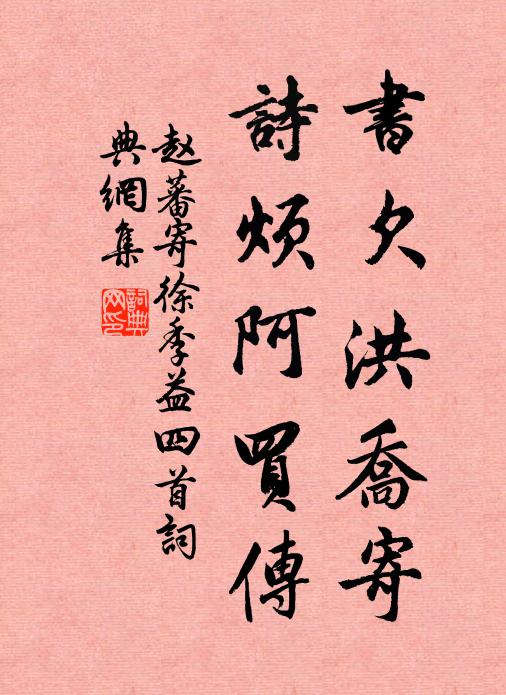 書久洪喬寄
詩煩阿買傳
赵蕃寄徐季益四首詞
典網集
詞典
网印